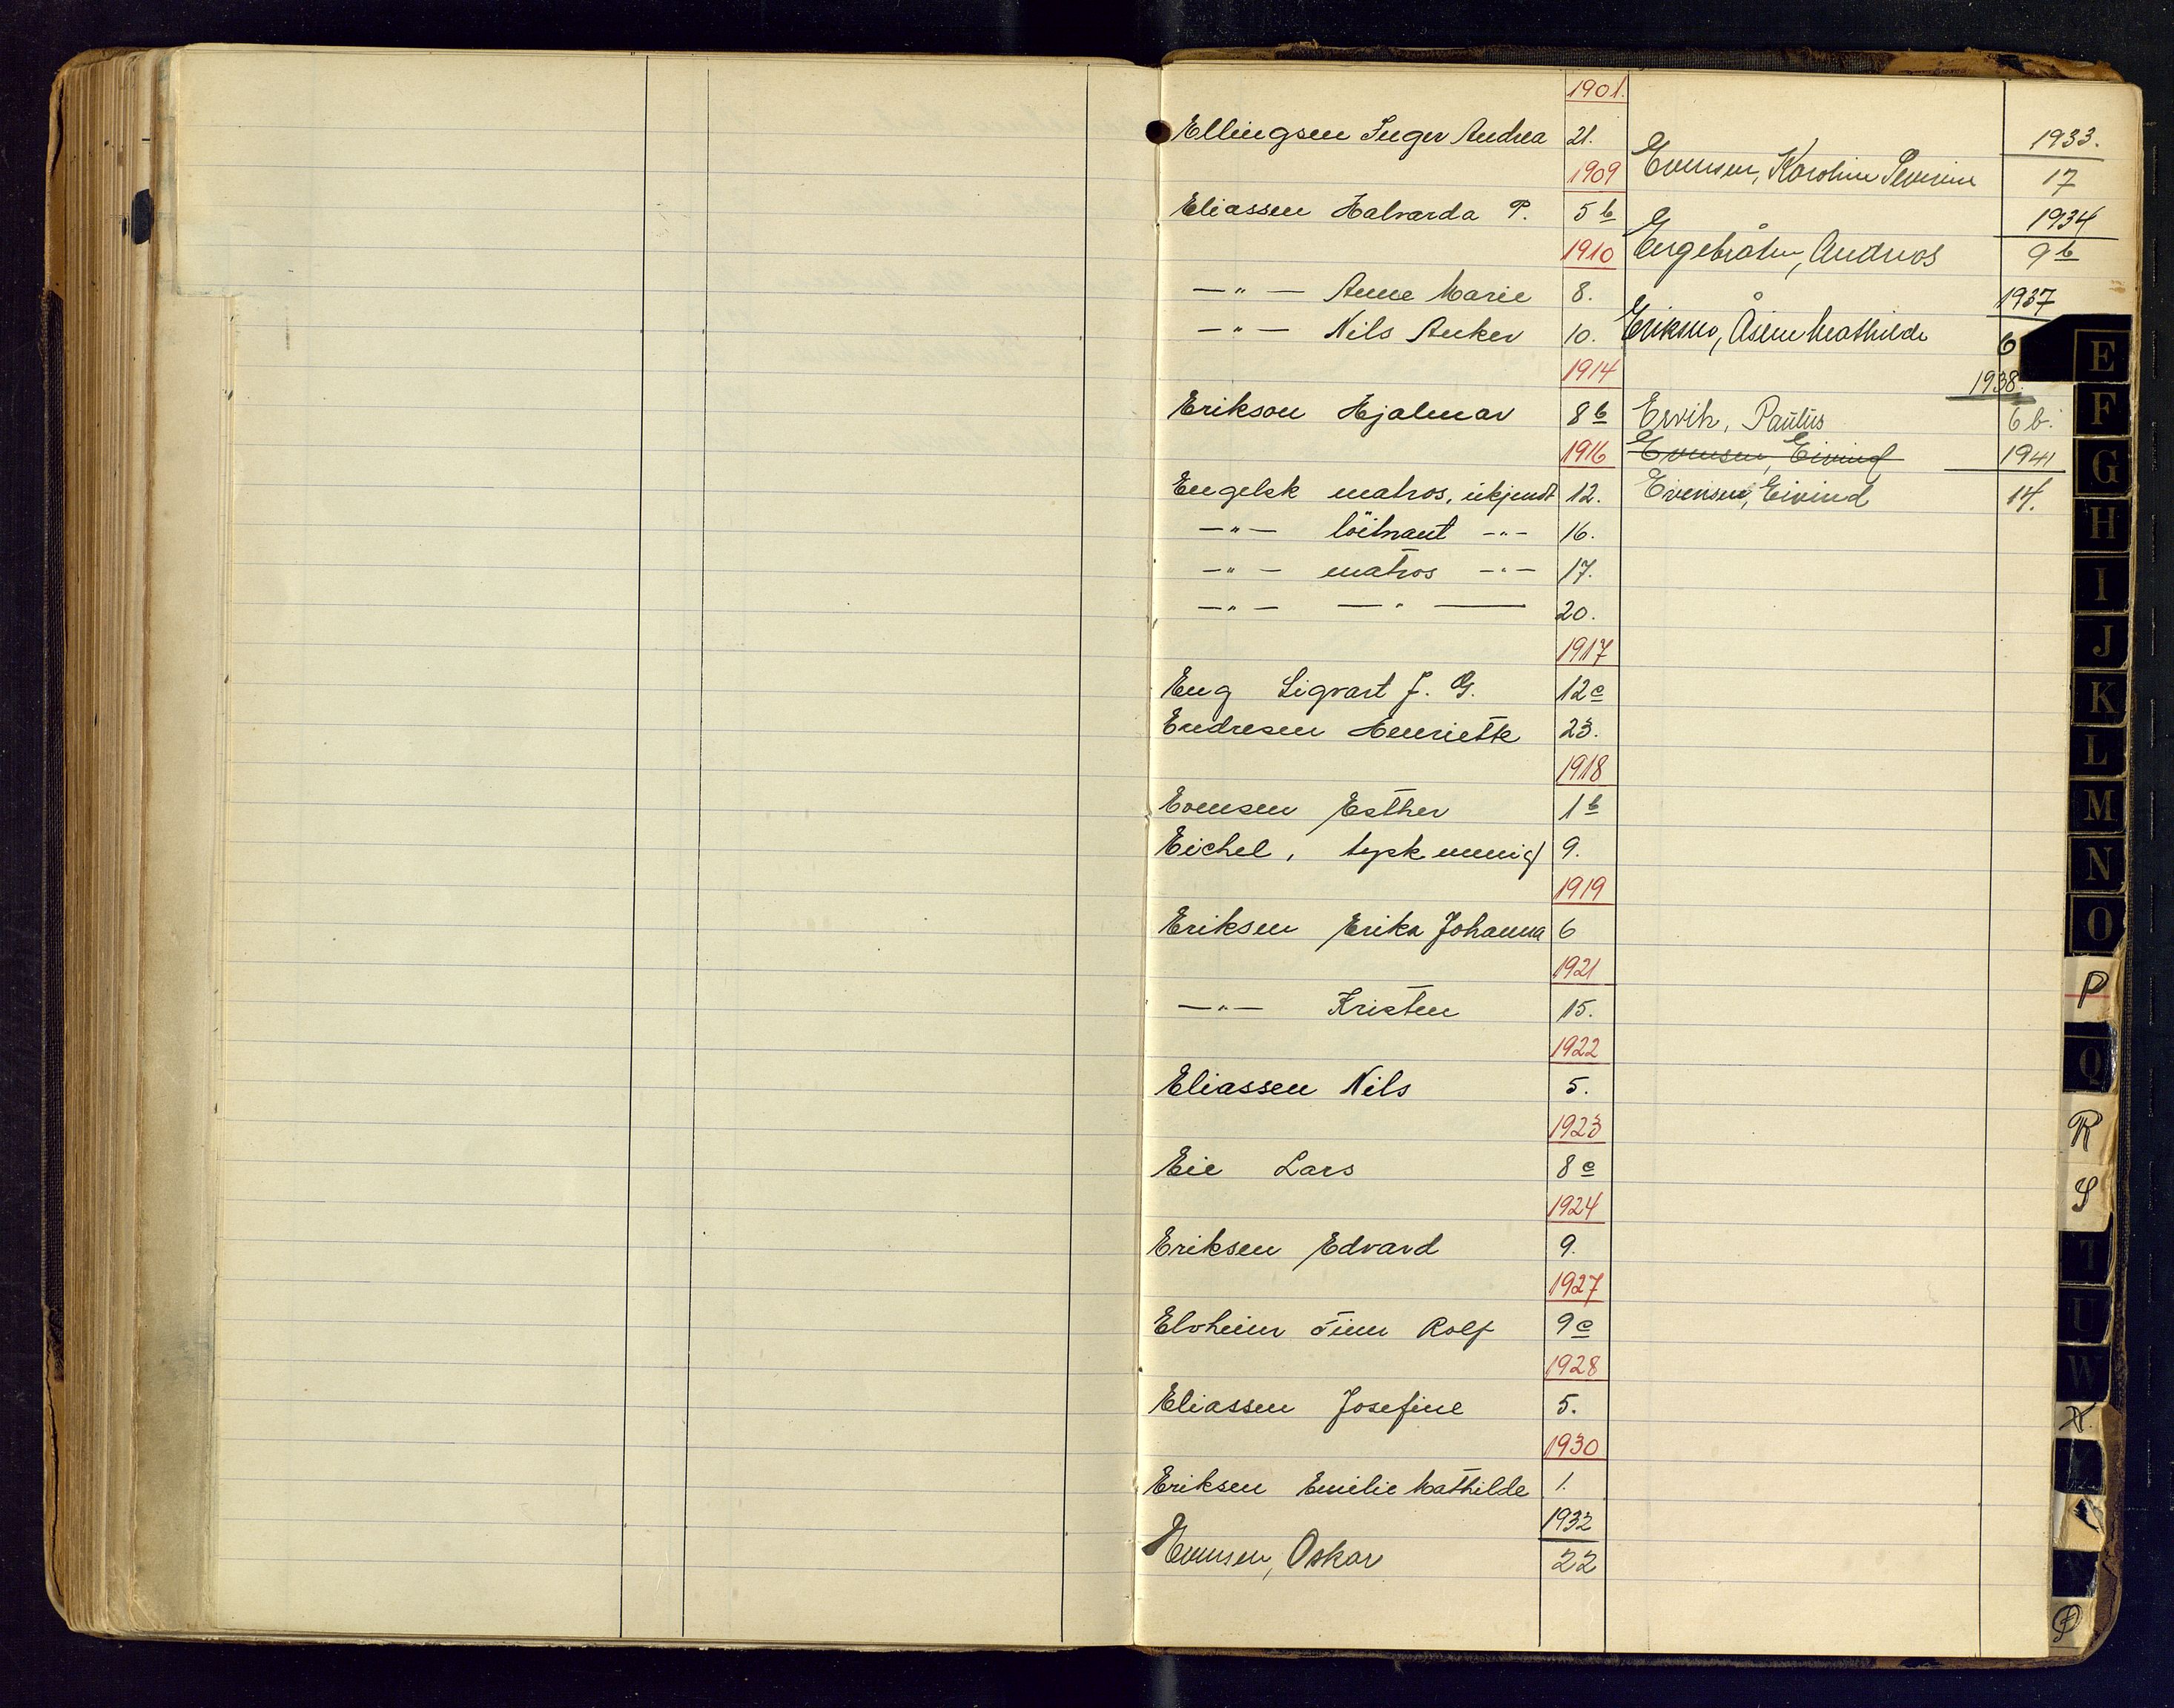 1901.
Ellingsen Inger Andrea 21.
1909
Eliassen Halvarda P. 5 b
1910
—"— Anne Marie 8.
—"— Nils Anker 10.
1914
Erikson Hjalmar 8 b
1916
Engelsk matros, ukjendt 12.
—"— löitnant —"— 16.
—"— matros —"— 17.
—"— —"— 20.
1917
Eng Sigvart J. G. 12 c
Endresen Henriette 23.
1918
Evensen Esther 1 b
Eichel, tysk 9.
1919
Eriksen Erika Johanna 6
1921
—"— Kristen 15.
1922
Eliassen Nils 5.
1923
Eie Lars 8 c
1924
Eriksen Edvard 9.
1927
Elvheim Finn Rolf 9 c
1928
Eliassen Josefine 5.
1930
Eriksen Emilie Mathilde 1.
1932
Evensen, Oskar 22
1933.
Evensen, Karoline Severine 17
1934
Engebråten, Andreas 9 b
1937
Eriksen, Åsine Mathilde 6
1938.
Ervik, Paulus 6 b.
Evensen, Eivind 1941
Evensen, Eivind 14.
E
F
G
H
I
J
K
L
M
N
O
P
Q
R
S
T
U
W
Ø